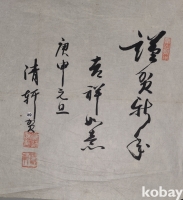 謹賀新年
吉祥如意
庚申元旦
清軒
kobay